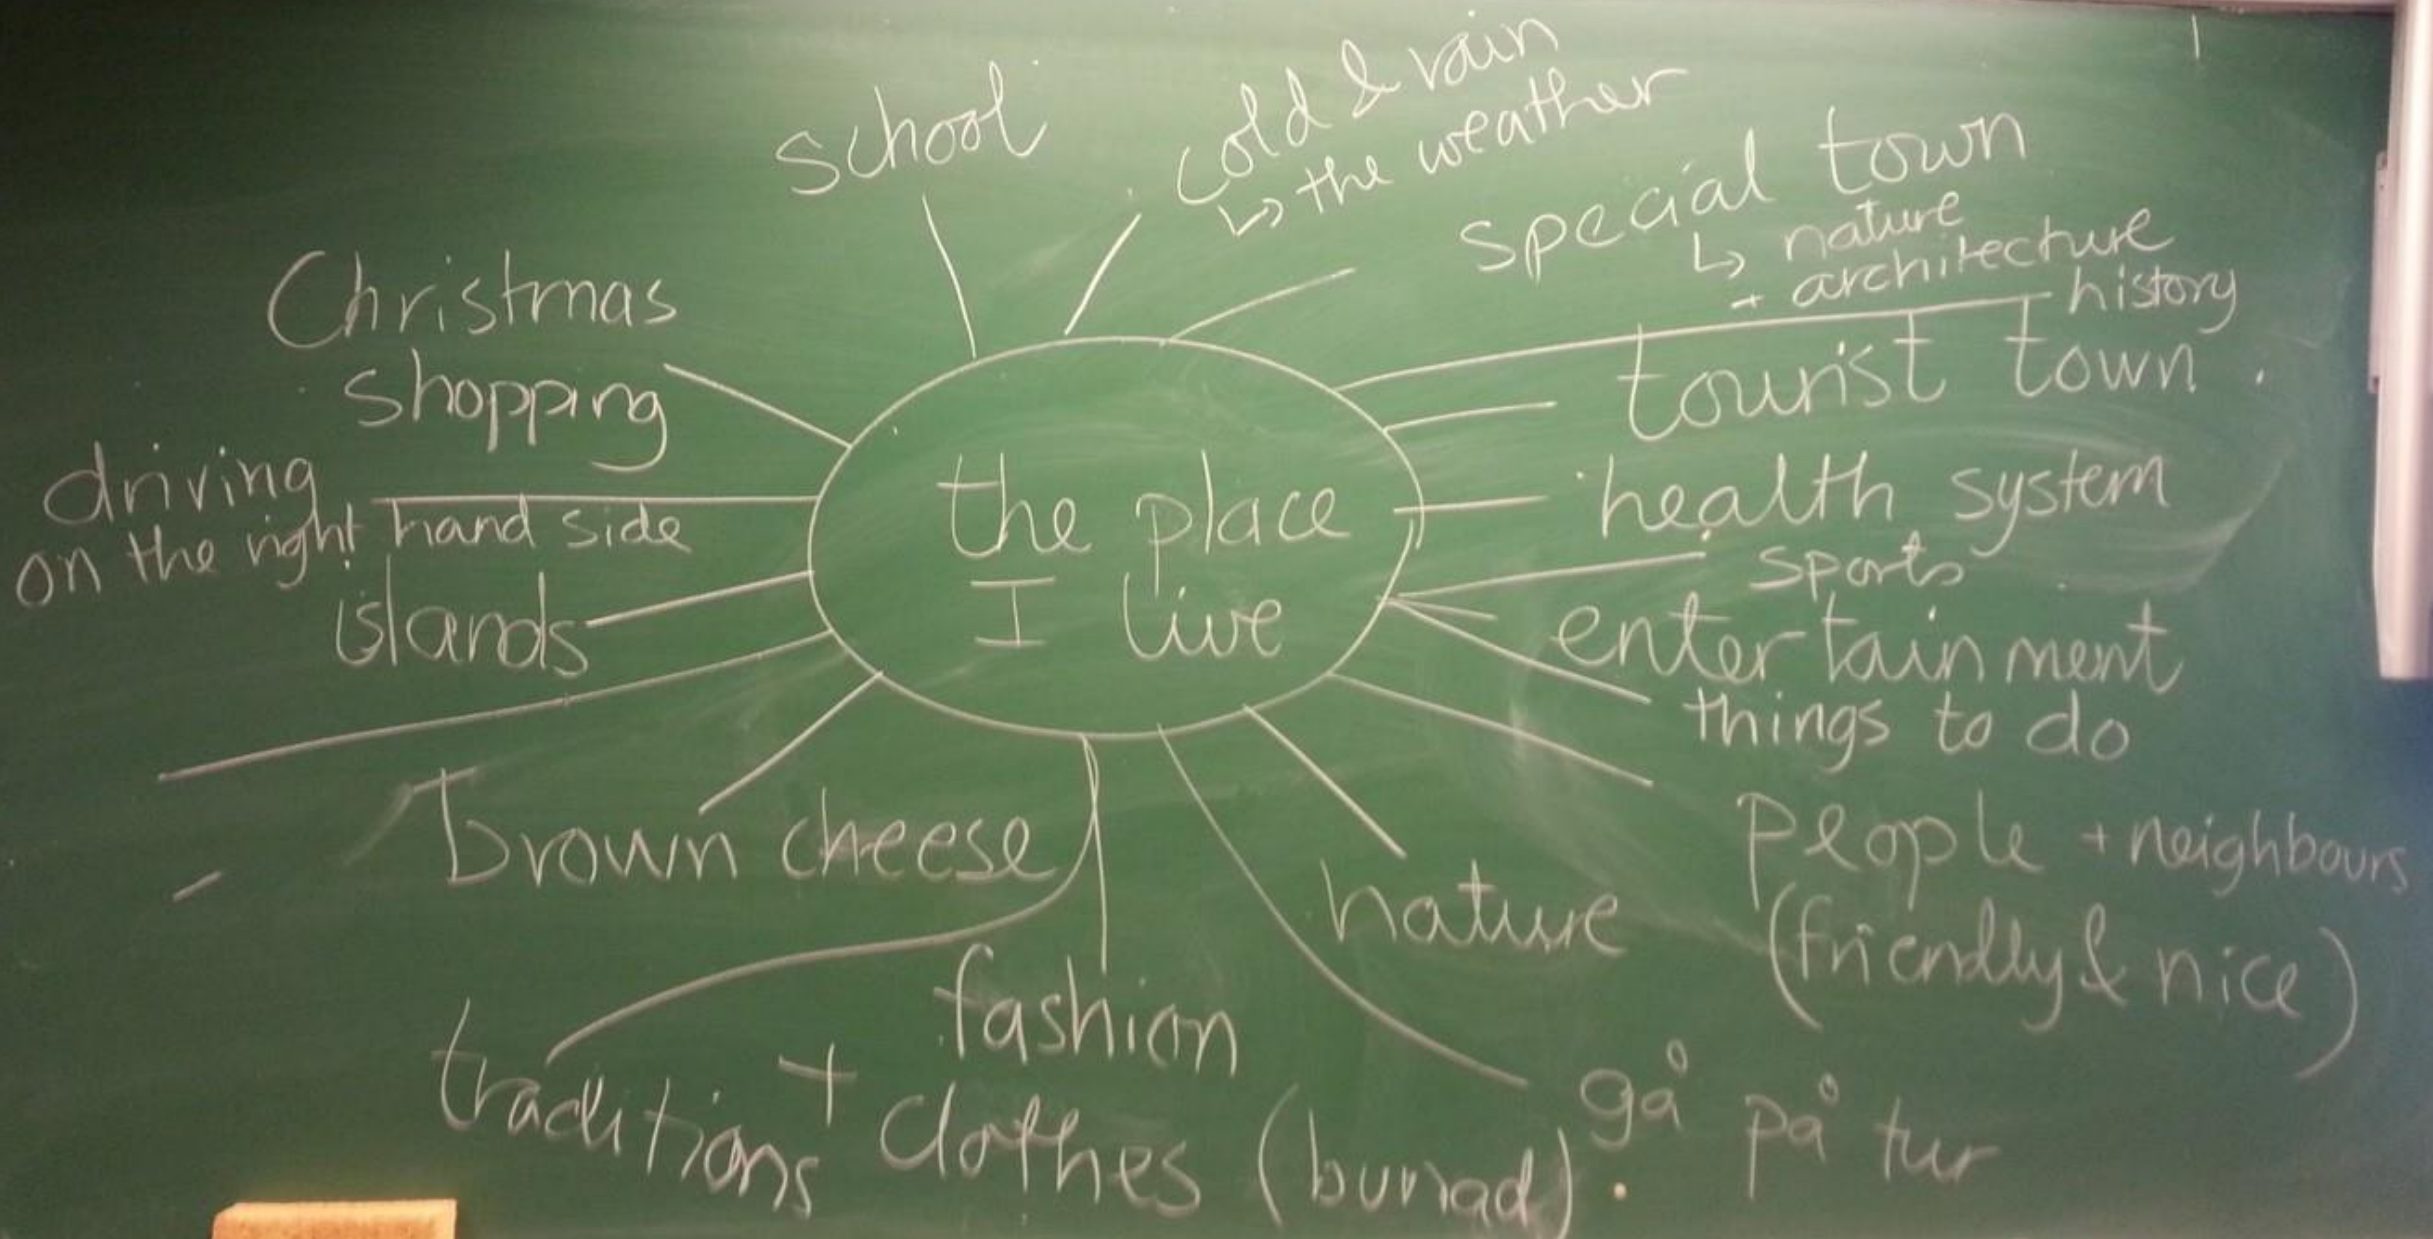 school
cold & rain
↳ the weather
special town
↳ nature
+ architecture
history
tourist town
health system
sports
entertainment
things to do
people + neighbours
(friendly & nice)
nature
gå på tur
fashion
+ clothes (bunad)
traditions
brown cheese
islands
driving
on the right hand side
Christmas
shopping
the place
I live